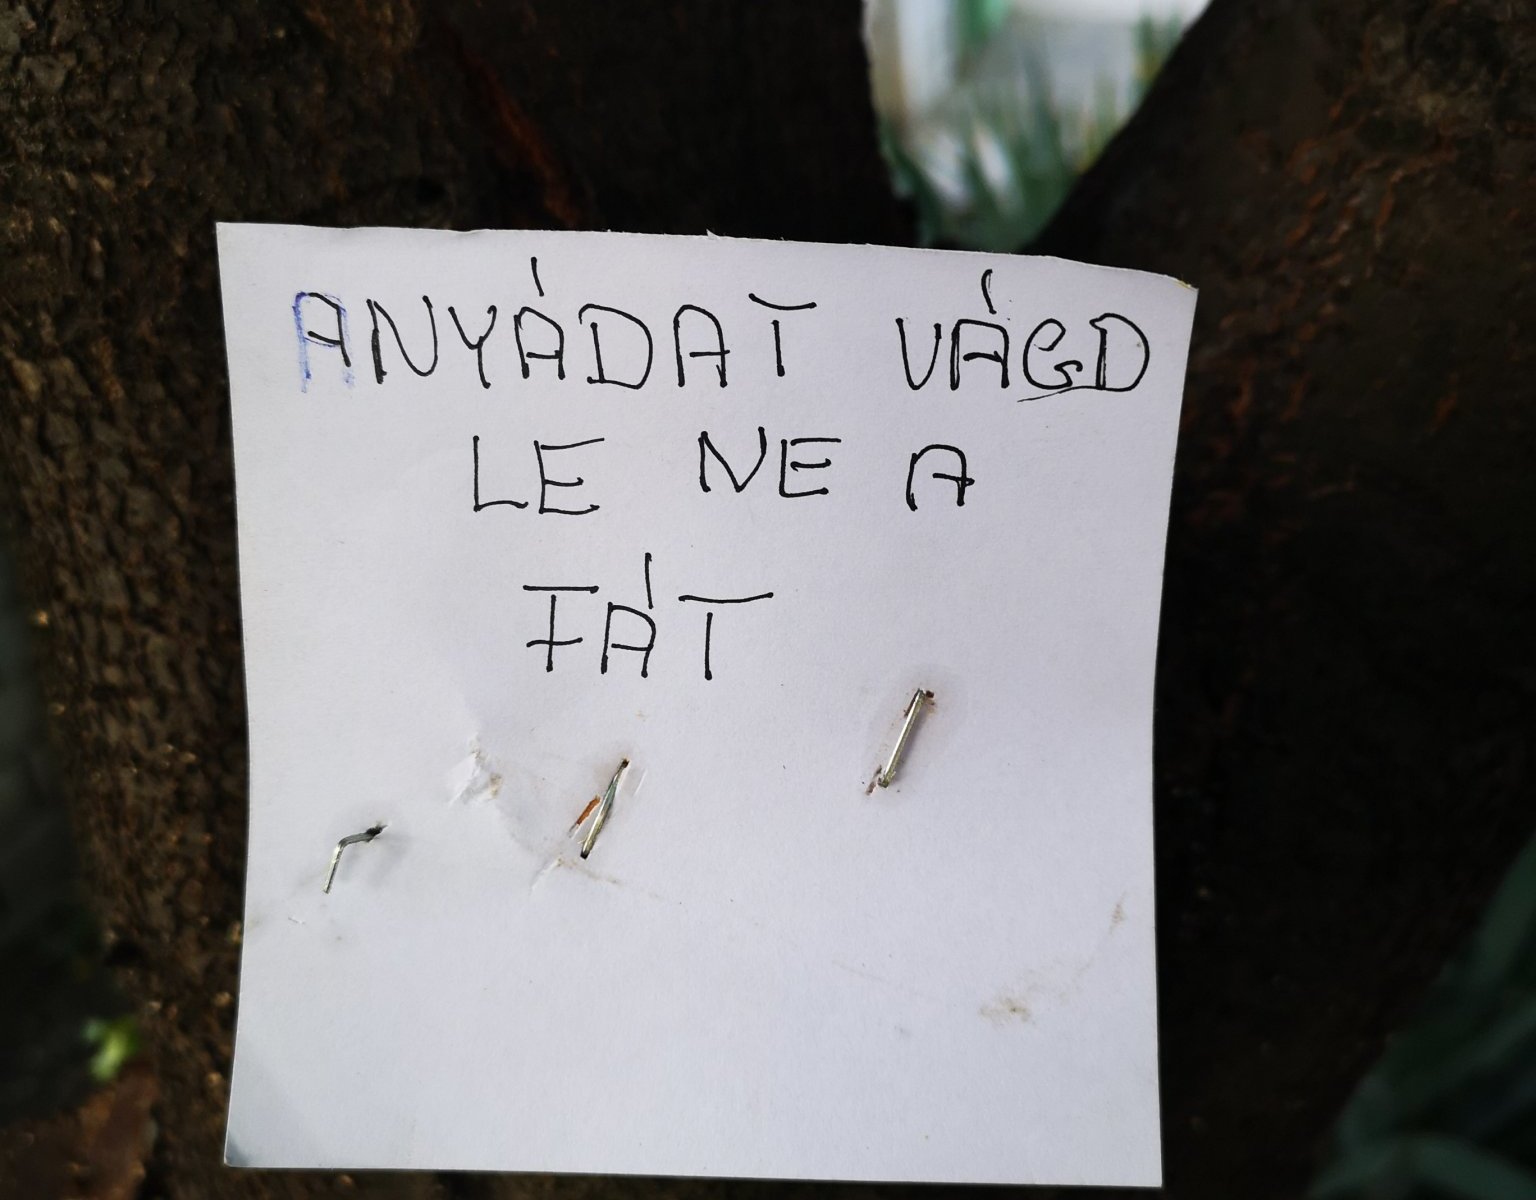 ANYÁDAT VÁGD
LE NE A
FÁT